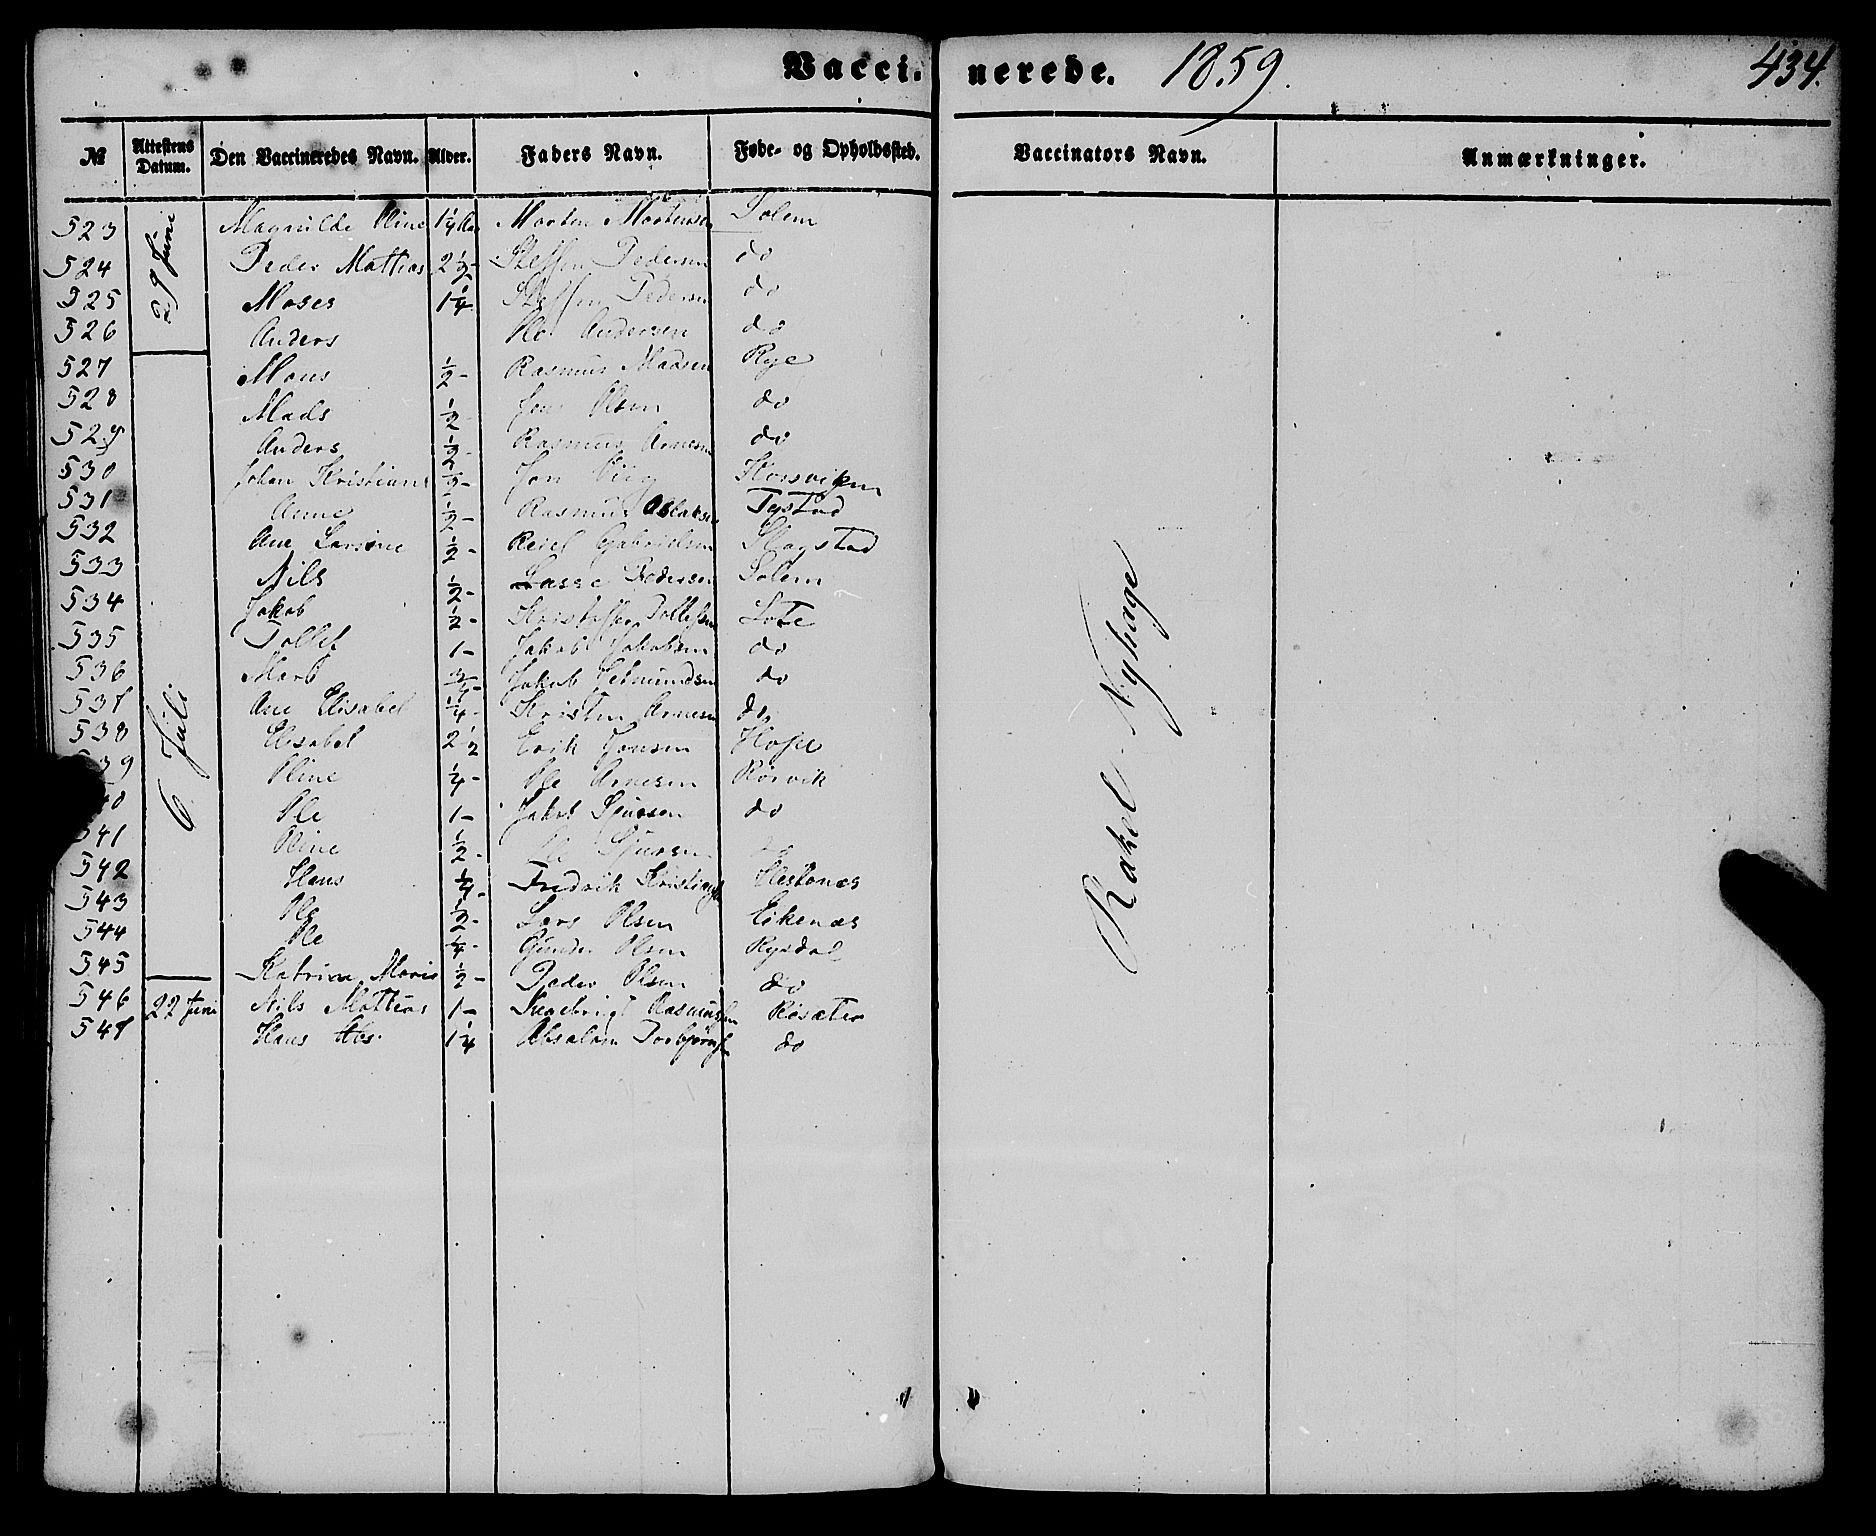 Vaccinerede. 1859. 434.
№ Attestens Datum. Den Vaccineredes Navn. Alder. Faders Navn. Føde- og Opholdssted. Vaccinators Navn. Anmærkninger.
523 29 Juni Magnilde Oline 1¼ Aar Morten Mortensen Solem
524 Peder Mattias 2½ - Steffen Pedersen do
525 Moses 1¼ Steffen Pedersen do
526 Anders Andersen do
527 6 Juli Mons ½ - Rasmus Madsen Rye
528 Mads ½ - Jens Olsen do
529 Anders ½ - Rasmus Arnesen do
530 Johan Kristian ½ - Jon
531 Anne ½ - Rasmus Tystad
532 Ane ½ - Reiel Gabrielsen
533 Nils ½ - Lasse Pedersen Solem
534 Jakob ½ - Kristoffer Tollefsen Lote
535 Tollef 1 - Jakob Jakobsen do
536 ¾ - Jakob do
537 Ane Elisabet ¼ - Kristen Arnesen do
538 Elisabet 2½ Erik Jonsen
539 Oline ¼ - Ole Arnesen Rørvik
540 Ole 1 - Jakob Sjursen do
541 Oline ½ - Ole Sjursen
542 Hans ¼ - Fredrik
543 Ole ½ - Lars Olsen Eikenæs
544 Ole ¼ - Gunder Olsen Rysdal
545 Katrine Marie ½ - Peder Olsen do
546 22 Juni Nils Mattias 1 - Ingebrigt Rasmussen Røsæter
547 Hans Abs. 1¼ Absalom do
Rakel Nyhage